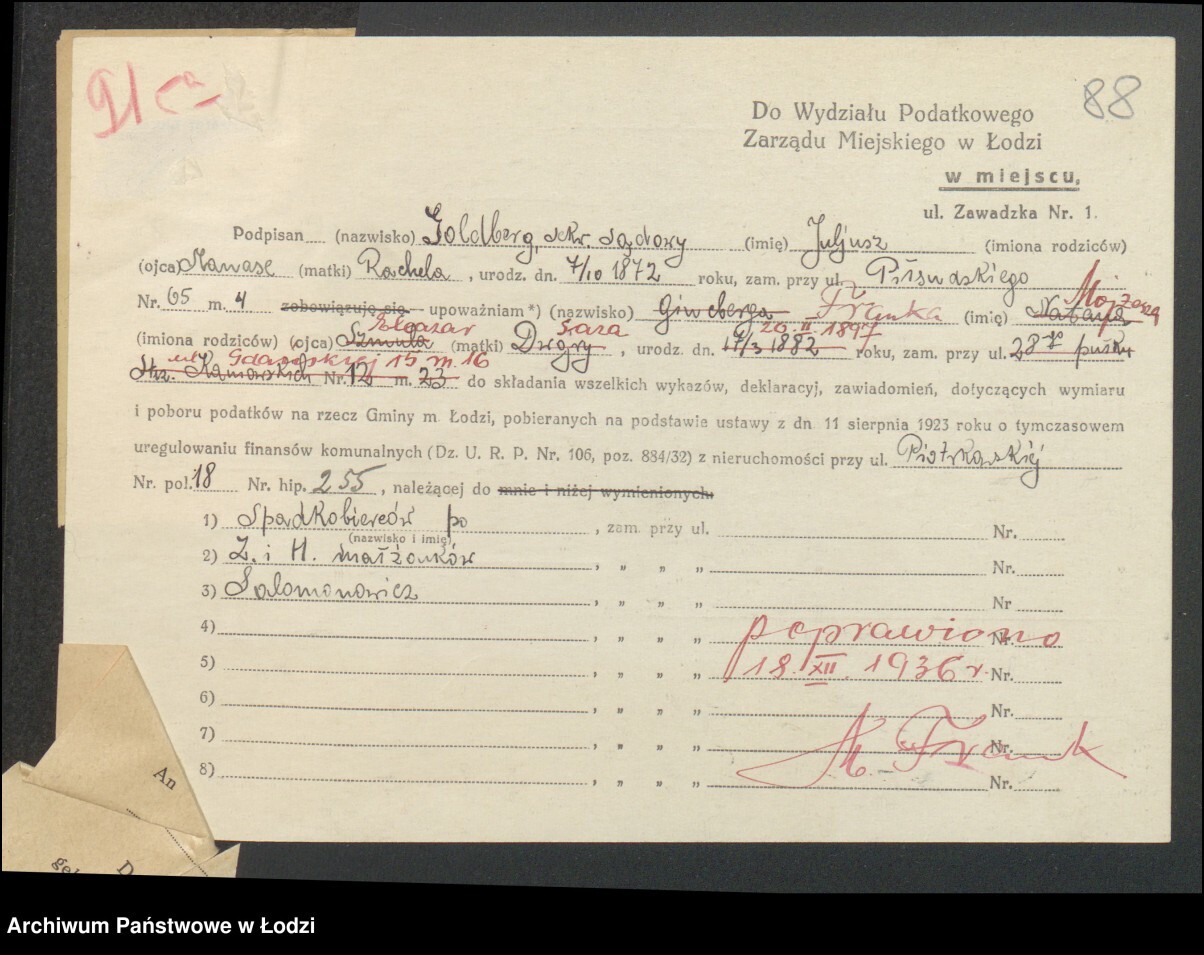 91
88
Do Wydziału Podatkowego
Zarządu Miejskiego w Łodzi
w miejscu,
ul. Zawadzka Nr. 1.
Podpisan.... (nazwisko) Goldberg, sekr. sądowy (imię) Juljusz (imiona rodziców)
(ojca) Manase (matki) Rachela, urodz. dn. 7/10 1872 roku, zam. przy ul. Piłsudskiego
Nr. 65 m. 4 zobowiązuję się - upoważniam *) (nazwisko) Ginsberga Franka (imię) Natana Mojżesza
(imiona rodziców) (ojca) Szmula Elgazar (matki) Dwojry Sara, urodz. dn. 17/3 1882 20.II.1897 roku, zam. przy ul. 28 p. pułku
Strz. Kaniowskich ul. Gdańskiej 15 m. 16 Nr. 12 m. 23 do składania wszelkich wykazów, deklaracyj, zawiadomień, dotyczących wymiaru
i poboru podatków na rzecz Gminy m. Łodzi, pobieranych na podstawie ustawy z dn. 11 sierpnia 1923 roku o tymczasowem
uregulowaniu finansów komunalnych (Dz. U. R. P. Nr. 106, poz. 884/32) z nieruchomości przy ul. Piotrkowskiej
Nr. pol. 18 Nr. hip. 255, należącej do mnie i niżej wymienionych:
1) Spadkobierców po, zam. przy ul. Nr.
(nazwisko i imię)
2) Z. i H. małżonków, „ „ „ Nr.
3) Salomonowicz, „ „ „ Nr
4) , „ „ „ poprawiono Nr.
5) , „ „ „ 18.XII.1936 r. Nr.
6) , „ „ „ Nr.
7) , „ „ „ M. Frank Nr.
8) , „ „ „ Nr.
An
Archiwum Państwowe w Łodzi